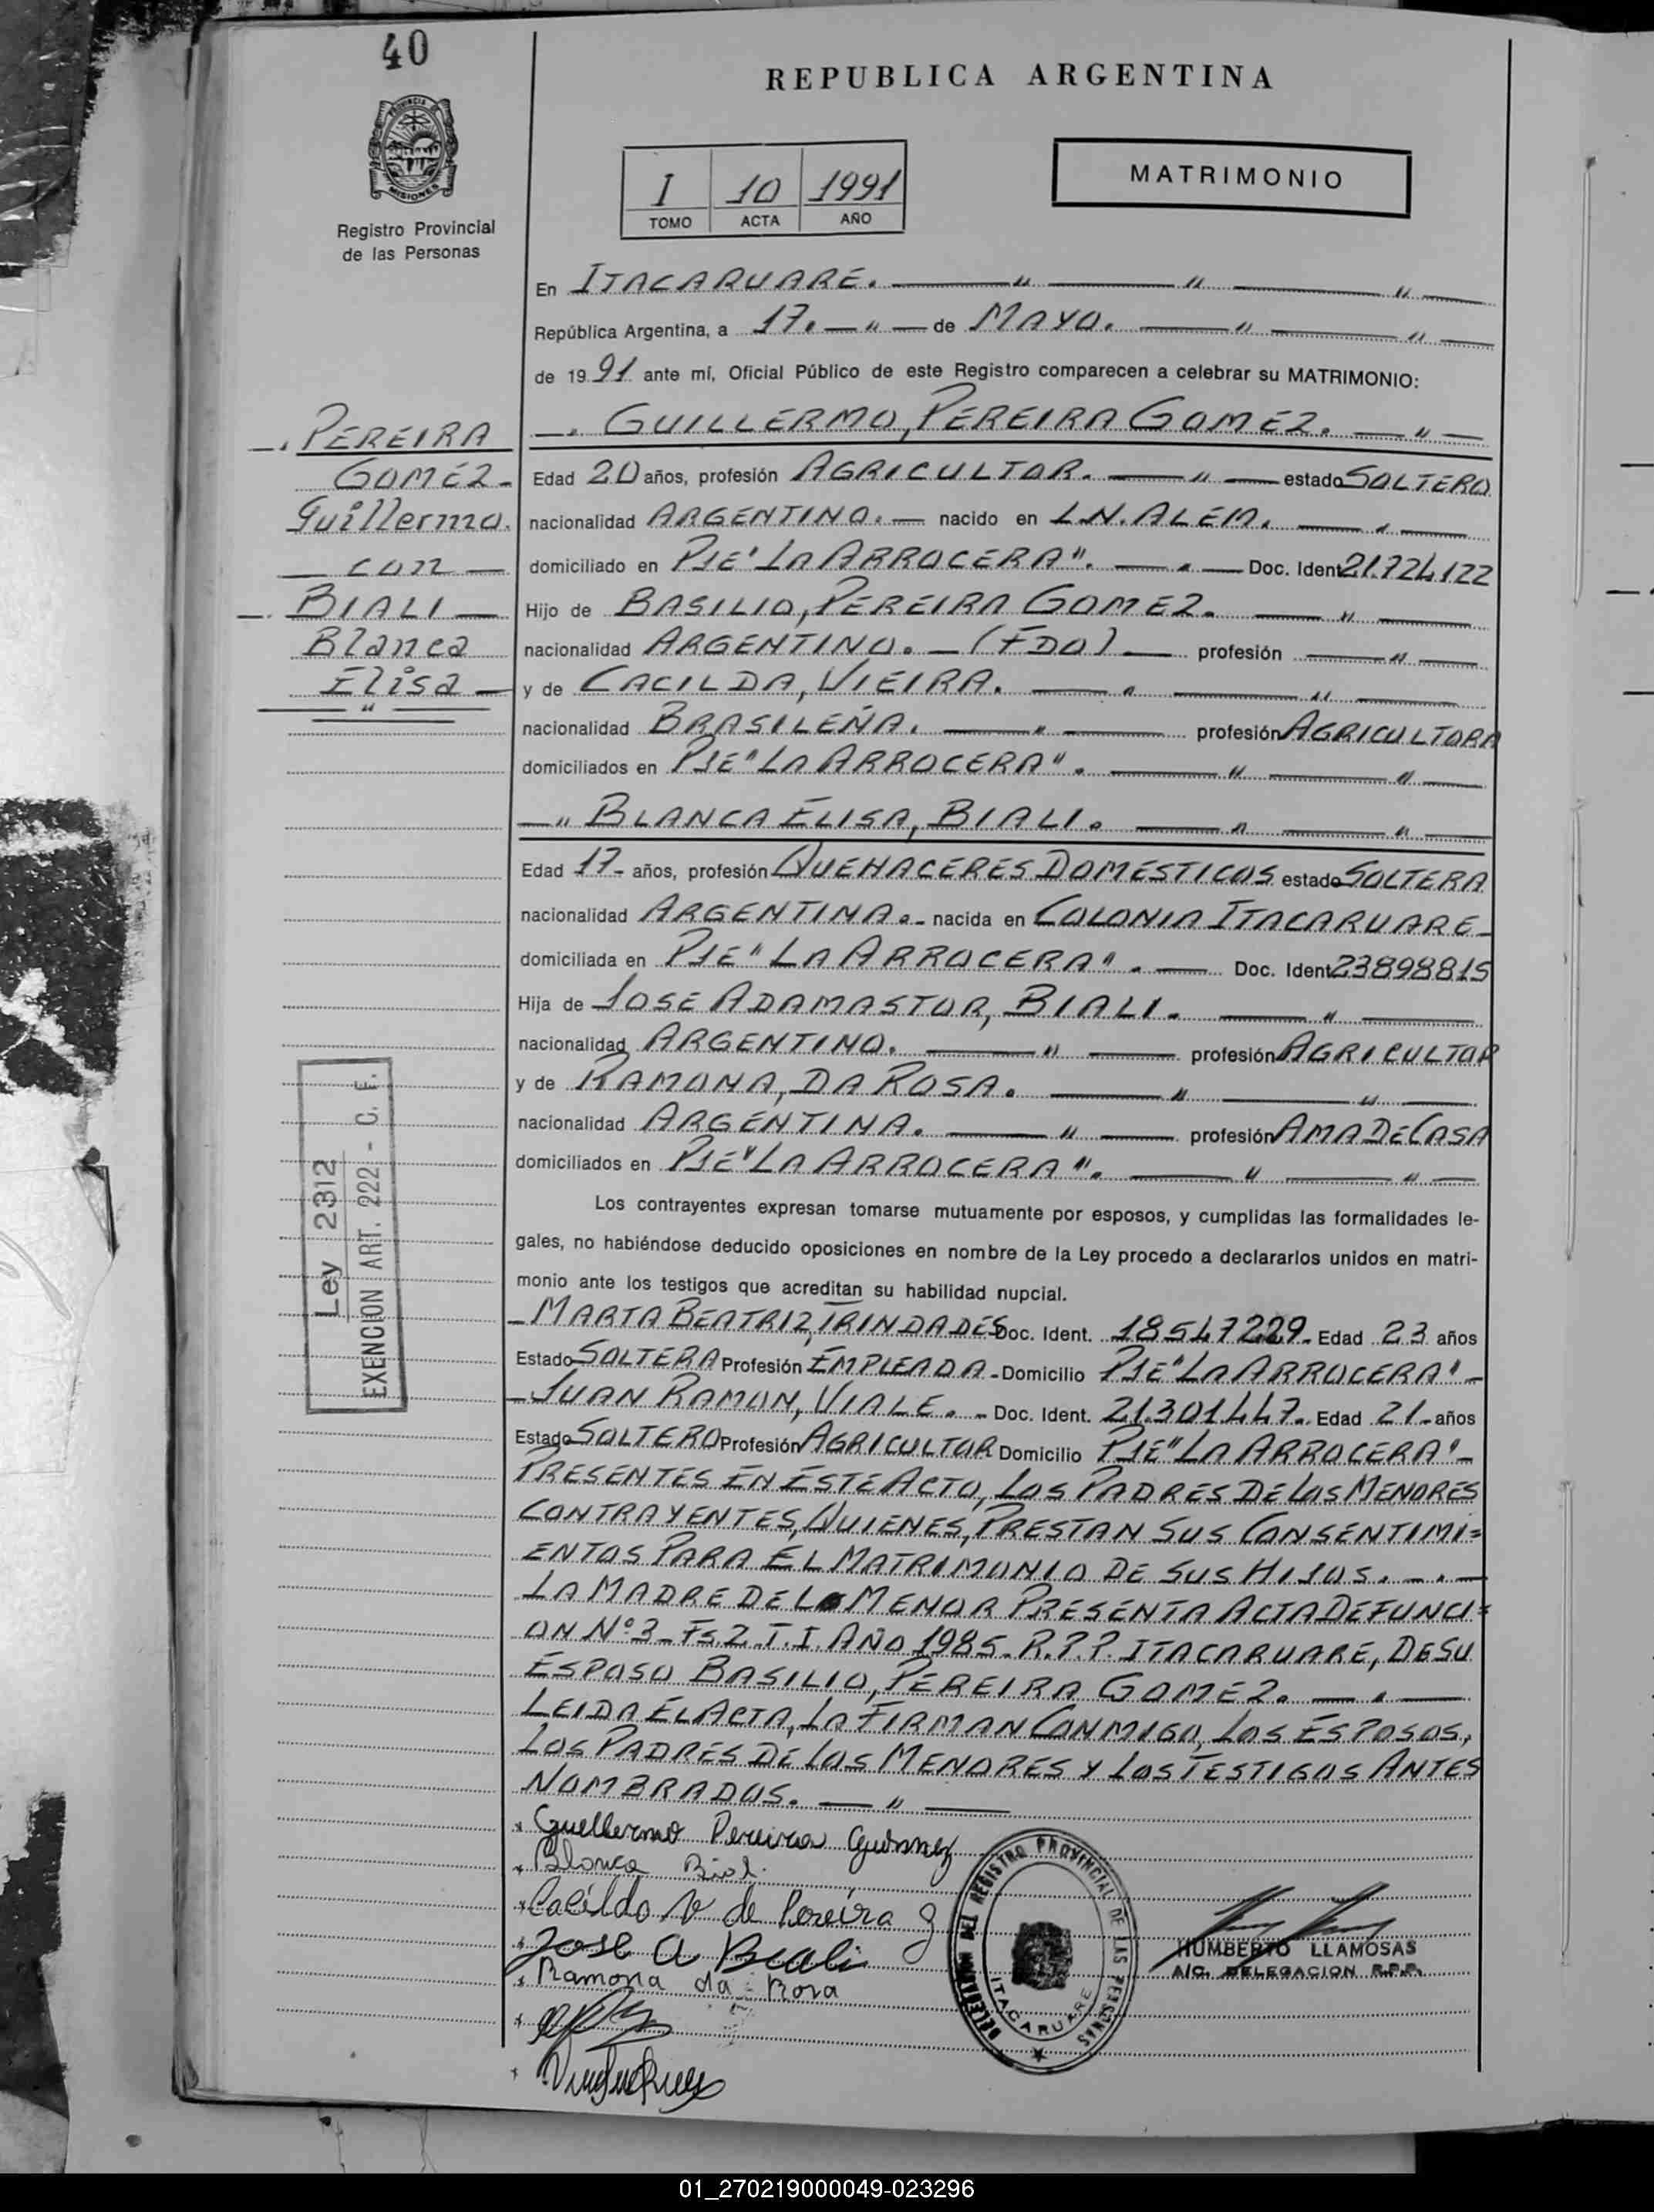 40
REPUBLICA ARGENTINA
PROVINCIA DE MISIONES
Registro Provincial
de las Personas
I 10 1991
TOMO ACTA AÑO
MATRIMONIO
En ITACARUARE. — " — " — " —
República Argentina, a 17. — " — de MAYO. — " — " —
de 1991 ante mí, Oficial Público de este Registro comparecen a celebrar su MATRIMONIO:
—. PEREIRA
GOMEZ-
Guillermo.
— con —
—. BIALI —
Blanca
Elisa —
— " —
—. GUILLERMO, PEREIRA GOMEZ. — " —
Edad 20 años, profesión AGRICULTOR. — " — estado SOLTERO
nacionalidad ARGENTINO. — nacido en L.N. ALEM. — " —
domiciliado en PJE "LA ARROCERA". — " — Doc. Ident. 21.724.122
Hijo de BASILIO, PEREIRA GOMEZ. — " —
nacionalidad ARGENTINO. — (FDO) — profesión — " —
y de CACILDA, VIEIRA. — " — " —
nacionalidad BRASILEÑA. — " — profesión AGRICULTORA
domiciliados en PJE "LA ARROCERA". — " — " —
—" BLANCA ELISA, BIALI. — " — " —
Edad 17- años, profesión QUEHACERES DOMESTICOS estado SOLTERA
nacionalidad ARGENTINA. - nacida en COLONIA ITACARUARE-
domiciliada en PJE "LA ARROCERA". — Doc. Ident. 23898815
Hija de JOSE ADAMASTOR, BIALI. — " —
nacionalidad ARGENTINO. — " — profesión AGRICULTOR
y de RAMONA, DA ROSA. — " — " —
nacionalidad ARGENTINA. — " — profesión AMA DE CASA
domiciliados en PJE "LA ARROCERA". — " — " —
Ley 2312
EXENCION ART. 222 - C. F.
Los contrayentes expresan tomarse mutuamente por esposos, y cumplidas las formalidades le-
gales, no habiéndose deducido oposiciones en nombre de la Ley procedo a declararlos unidos en matri-
monio ante los testigos que acreditan su habilidad nupcial.
- MARTA BEATRIZ, TRINDADES Doc. Ident. 18547229- Edad 23 años
Estado SOLTERA Profesión EMPLEADA - Domicilio PJE "LA ARROCERA" -
- JUAN RAMON, VIALE. - Doc. Ident. 21.301.447. Edad 21- años
Estado SOLTERO Profesión AGRICULTOR Domicilio PJE "LA ARROCERA" -
PRESENTES EN ESTE ACTO, LOS PADRES DE LOS MENORES
CONTRAYENTES, QUIENES, PRESTAN SUS CONSENTIMI=
ENTOS PARA EL MATRIMONIO DE SUS HIJOS. -.-
LA MADRE DEL MENOR PRESENTA ACTA DEFUNCI=
ON Nº 3- Fs. 2. T. I. AÑO 1985- R.P.P. ITACARUARE, DE SU
ESPOSO BASILIO, PEREIRA GOMEZ. — . —
LEIDA EL ACTA, LA FIRMAN CONMIGO, LOS ESPOSOS,
LOS PADRES DE LOS MENORES Y LOS TESTIGOS ANTES
NOMBRADOS. — " —
Guellermo Pereira Gomez
Blanca Biali
Cacilda V de Pereira g
Jose A Biali
Ramona da Rosa
DELEGACION DEL REGISTRO PROVINCIAL DE LAS PERSONAS
ITACARUARE
HUMBERTO LLAMOSAS
A/C. DELEGACION R.P.P.
01_270219000049-023296